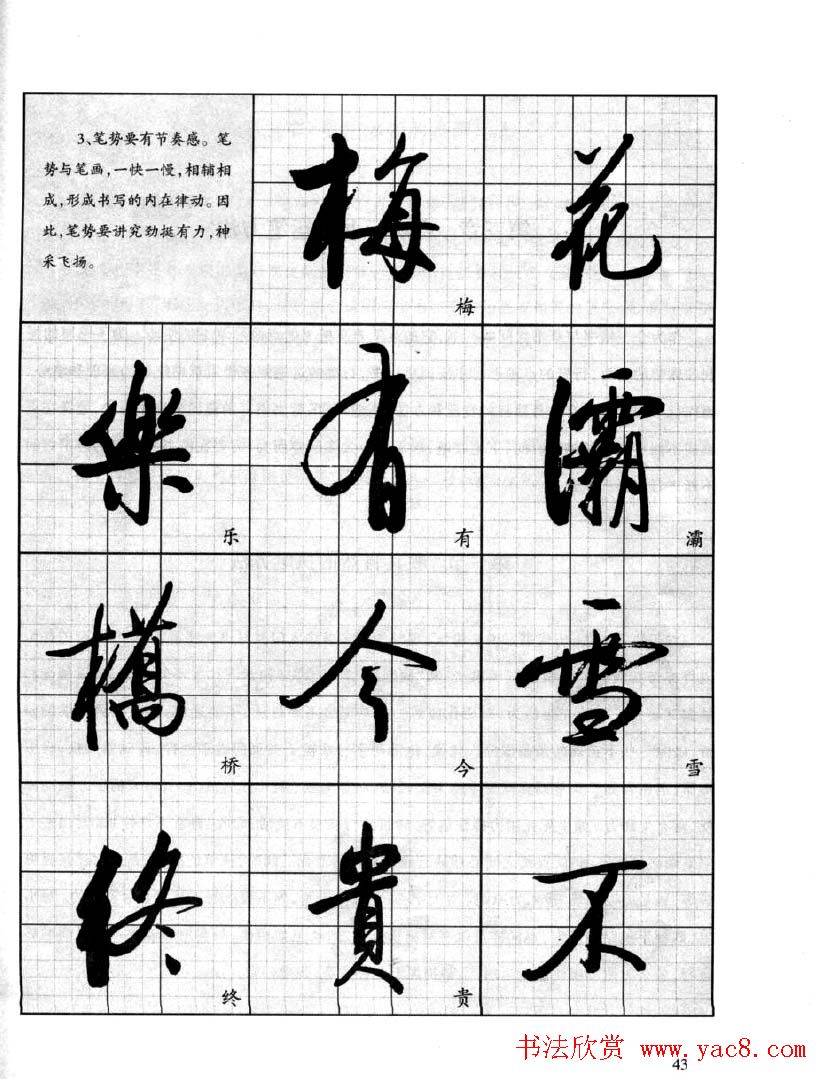 3、笔势要有节奏感。笔
势与笔画,一快一慢,相辅相
成,形成书写的内在律动。因
此,笔势要讲究劲挺有力,神
采飞扬。
梅
梅
花
樂
乐
有
有
灞
灞
橋
桥
今
今
雪
雪
終
终
貴
贵
不
书法欣赏 www.yac8.com
43